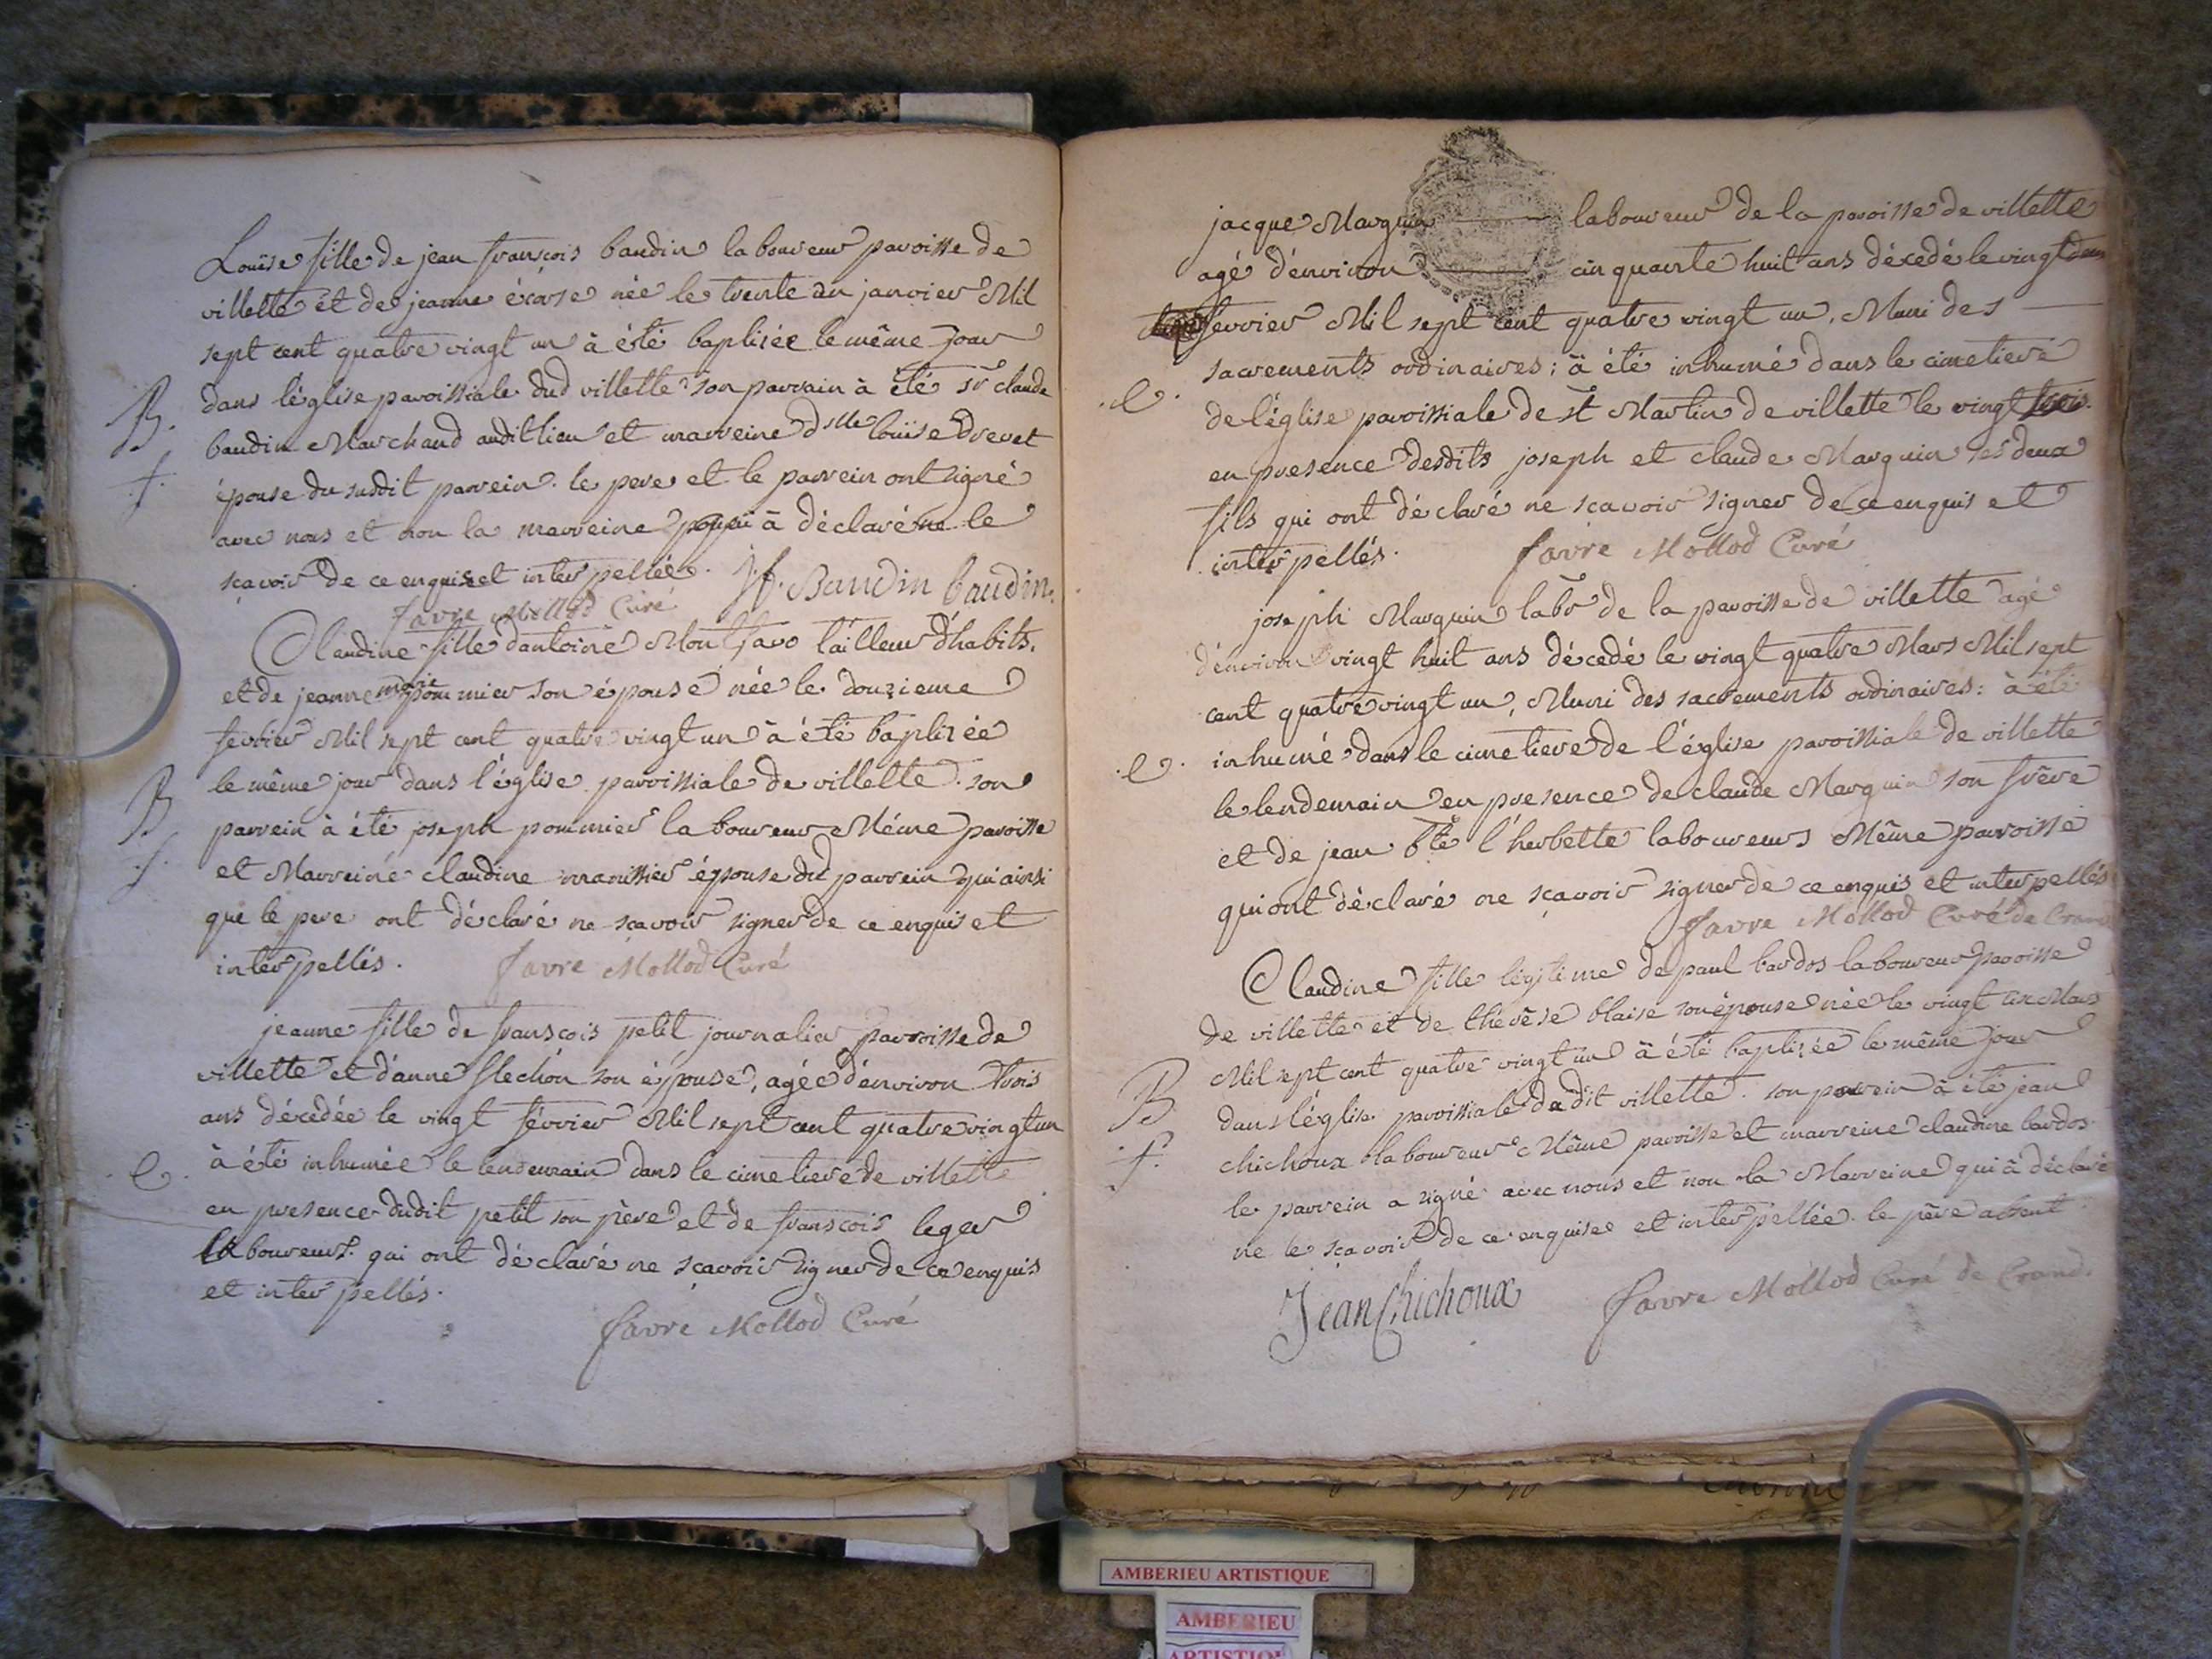 Louise fille de jean françois baudin laboureur paroisse de
villette et de jeanne écarse née le trente un janvier Mil
sept cent quatre vingt un à été baptisée le même jour
B. dans l'église paroissiale dud villette son parrain à été sr claude
baudin Marchand audit lieu et marreine dlle louise Drevet
f. épouse du susdit parrein. le pere et le parrein ont signé
avec nous et non la marreine qui à déclaré ne le
sçavoir de ce enquise et interpellée. J.f. Baudin baudin.
favre Mollod Curé
Claudine fille dantoine Montfavo tailleur d'habits.
et de jeanne marie pommier son épouse née le douzieme
fevrier Mil sept cent quatre vingt un à été baptisée
B le même jour dans l'église paroissiale de villette. son
parrein à été joseph pommier laboureur Même paroisse
f. et Marreine claudine épouse dud parrein qui ainsi
que le pere ont déclaré ne sçavoir signer de ce enquis et
interpellés. favre Mollod Curé
jeanne fille de franscois petit journalier parroisse de
villette et d'anne flechon son épouse, agée d'environ trois
ans décedée le vingt février Mil sept cent quatre vingt un
e. à été inhumée le lendemain dans le cimetiere de villette
en presence dudit petit son père et de franscois leger
laboureurs. qui ont déclaré ne sçavoir signer de ce enquis
et interpellés.
favre Mollod Curé
jacque Marguin laboureur de la paroisse de villette
agé d'environ cinquante huit ans décedé le vingt deux
fevrier Mil sept cent quatre vingt un, Muni des
sacrements ordinaires; à été inhumé dans le cimetiere
e. de l'église paroissiale de st Martin de villette le vingt trois.
en presence desdits joseph et claude Marguin ses deux
fils qui ont déclaré ne scavoir signer de ce enquis et
interpellés. favre Mollod Curé
joseph Marguin labr de la paroisse de villette agé
d'environ vingt huit ans décedé le vingt quatre Mars Mil sept
cent quatre vingt un, Muni des sacrements ordinaires: à été
e. inhumé dans le cimetiere de l'église paroissiale de villette
le lendemain en presence de claude Marguin son frère
et de jean bte l'herbette laboureurs Même parroisse
qui ont déclaré ne sçavoir signer de ce enquis et interpellés
favre Mollod Curé de Crand
Claudine fille légitime de paul bardos laboureur paroisse
de villette et de thérèse blaise son épouse née le vingt six Mars
B Mil sept cent quatre vingt un à été baptisée le même jour
dans l'église parroissiale dudit villette. son parrein à été jean
f. chichoux laboureur Même paroisse et marreine claudine bardos.
le parrein a signé avec nous et non la Marreine qui à déclaré
ne le sçavoir de ce enquise et interpellée. le père absent
Jean Chichoux favre Mollod Curé de Crand.
AMBERIEU ARTISTIQUE
AMBERIEU
ARTISTIQUE